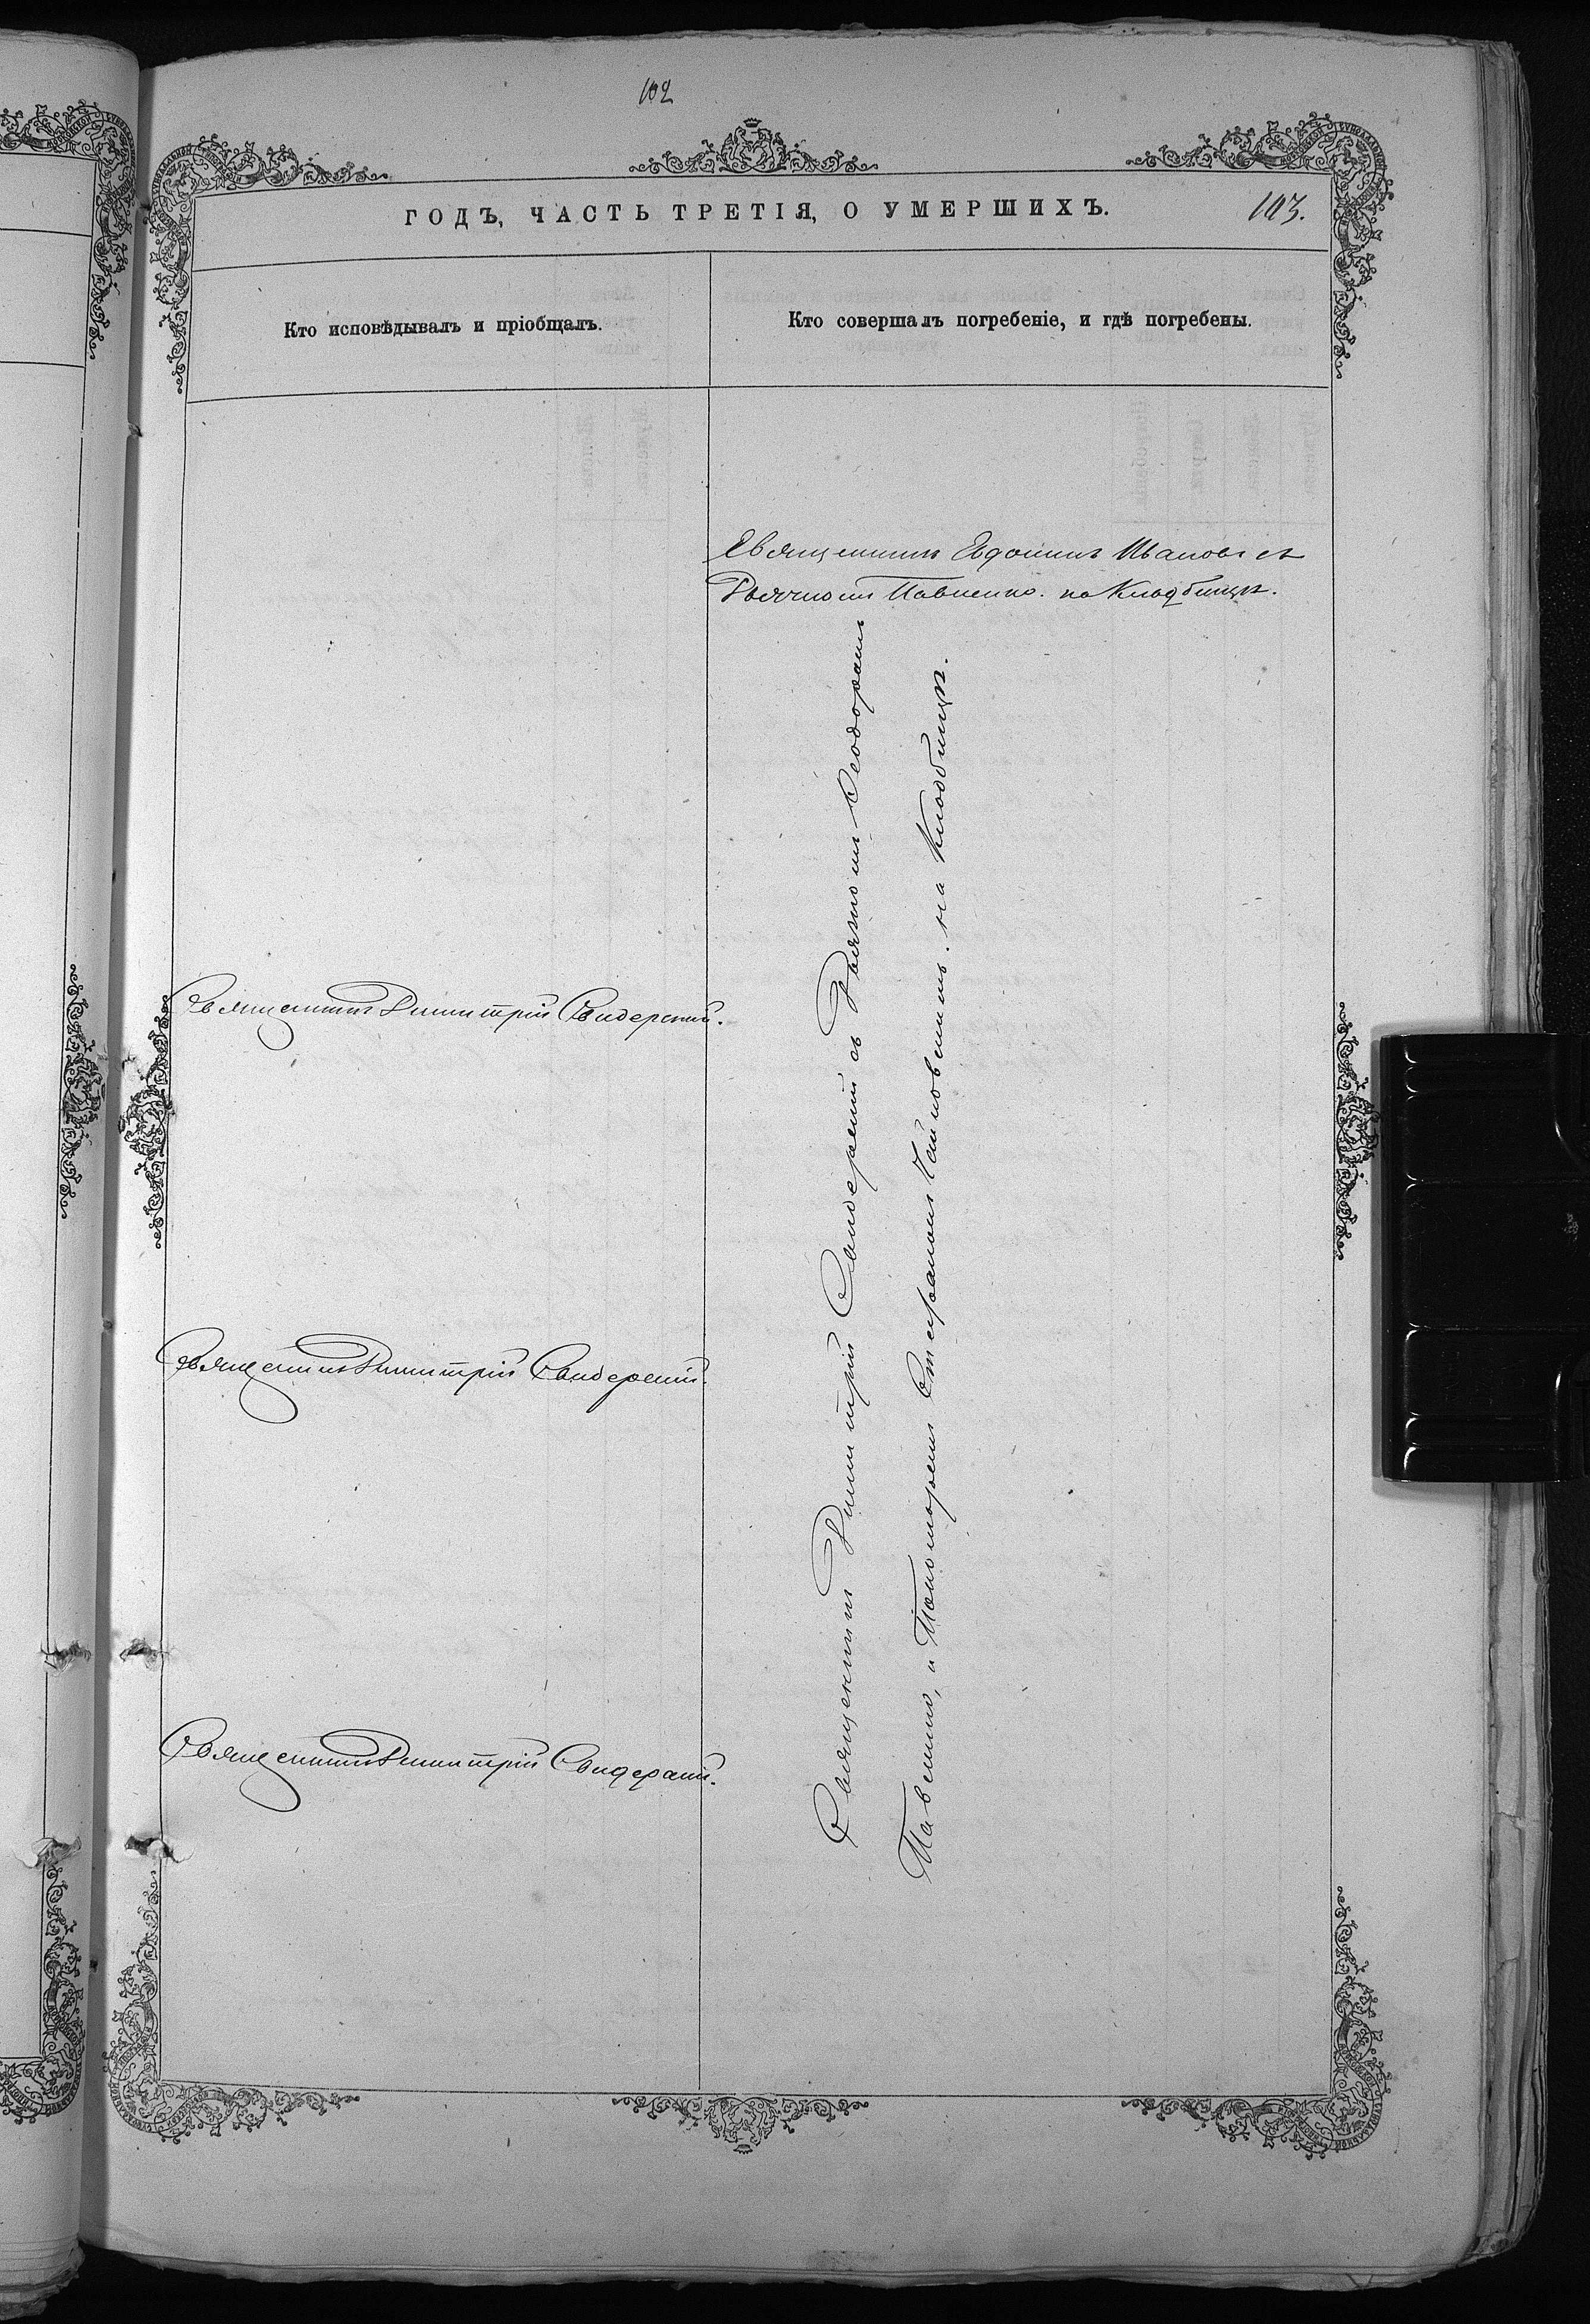 102
ГОДЪ, ЧАСТЬ ТРЕТІЯ, О УМЕРШИХЪ.
103.
Кто исповѣдывалъ и пріобщалъ.
Кто совершалъ погребеніе, и гдѣ погребены.
Священникъ Иванов съ
Дьячкомъ Павленко. на Кладбищѣ.
Священникъ Димитрій Свидерскій.
Священникъ Димитрій Свидерскій.
Священникъ Димитрій Свидерскій.
Священникъ Димитрій Свидерскій съ Дьячкомъ Ѳеодоромъ
Павленко, и Пономаремъ Стефаномъ на Кладбищѣ.